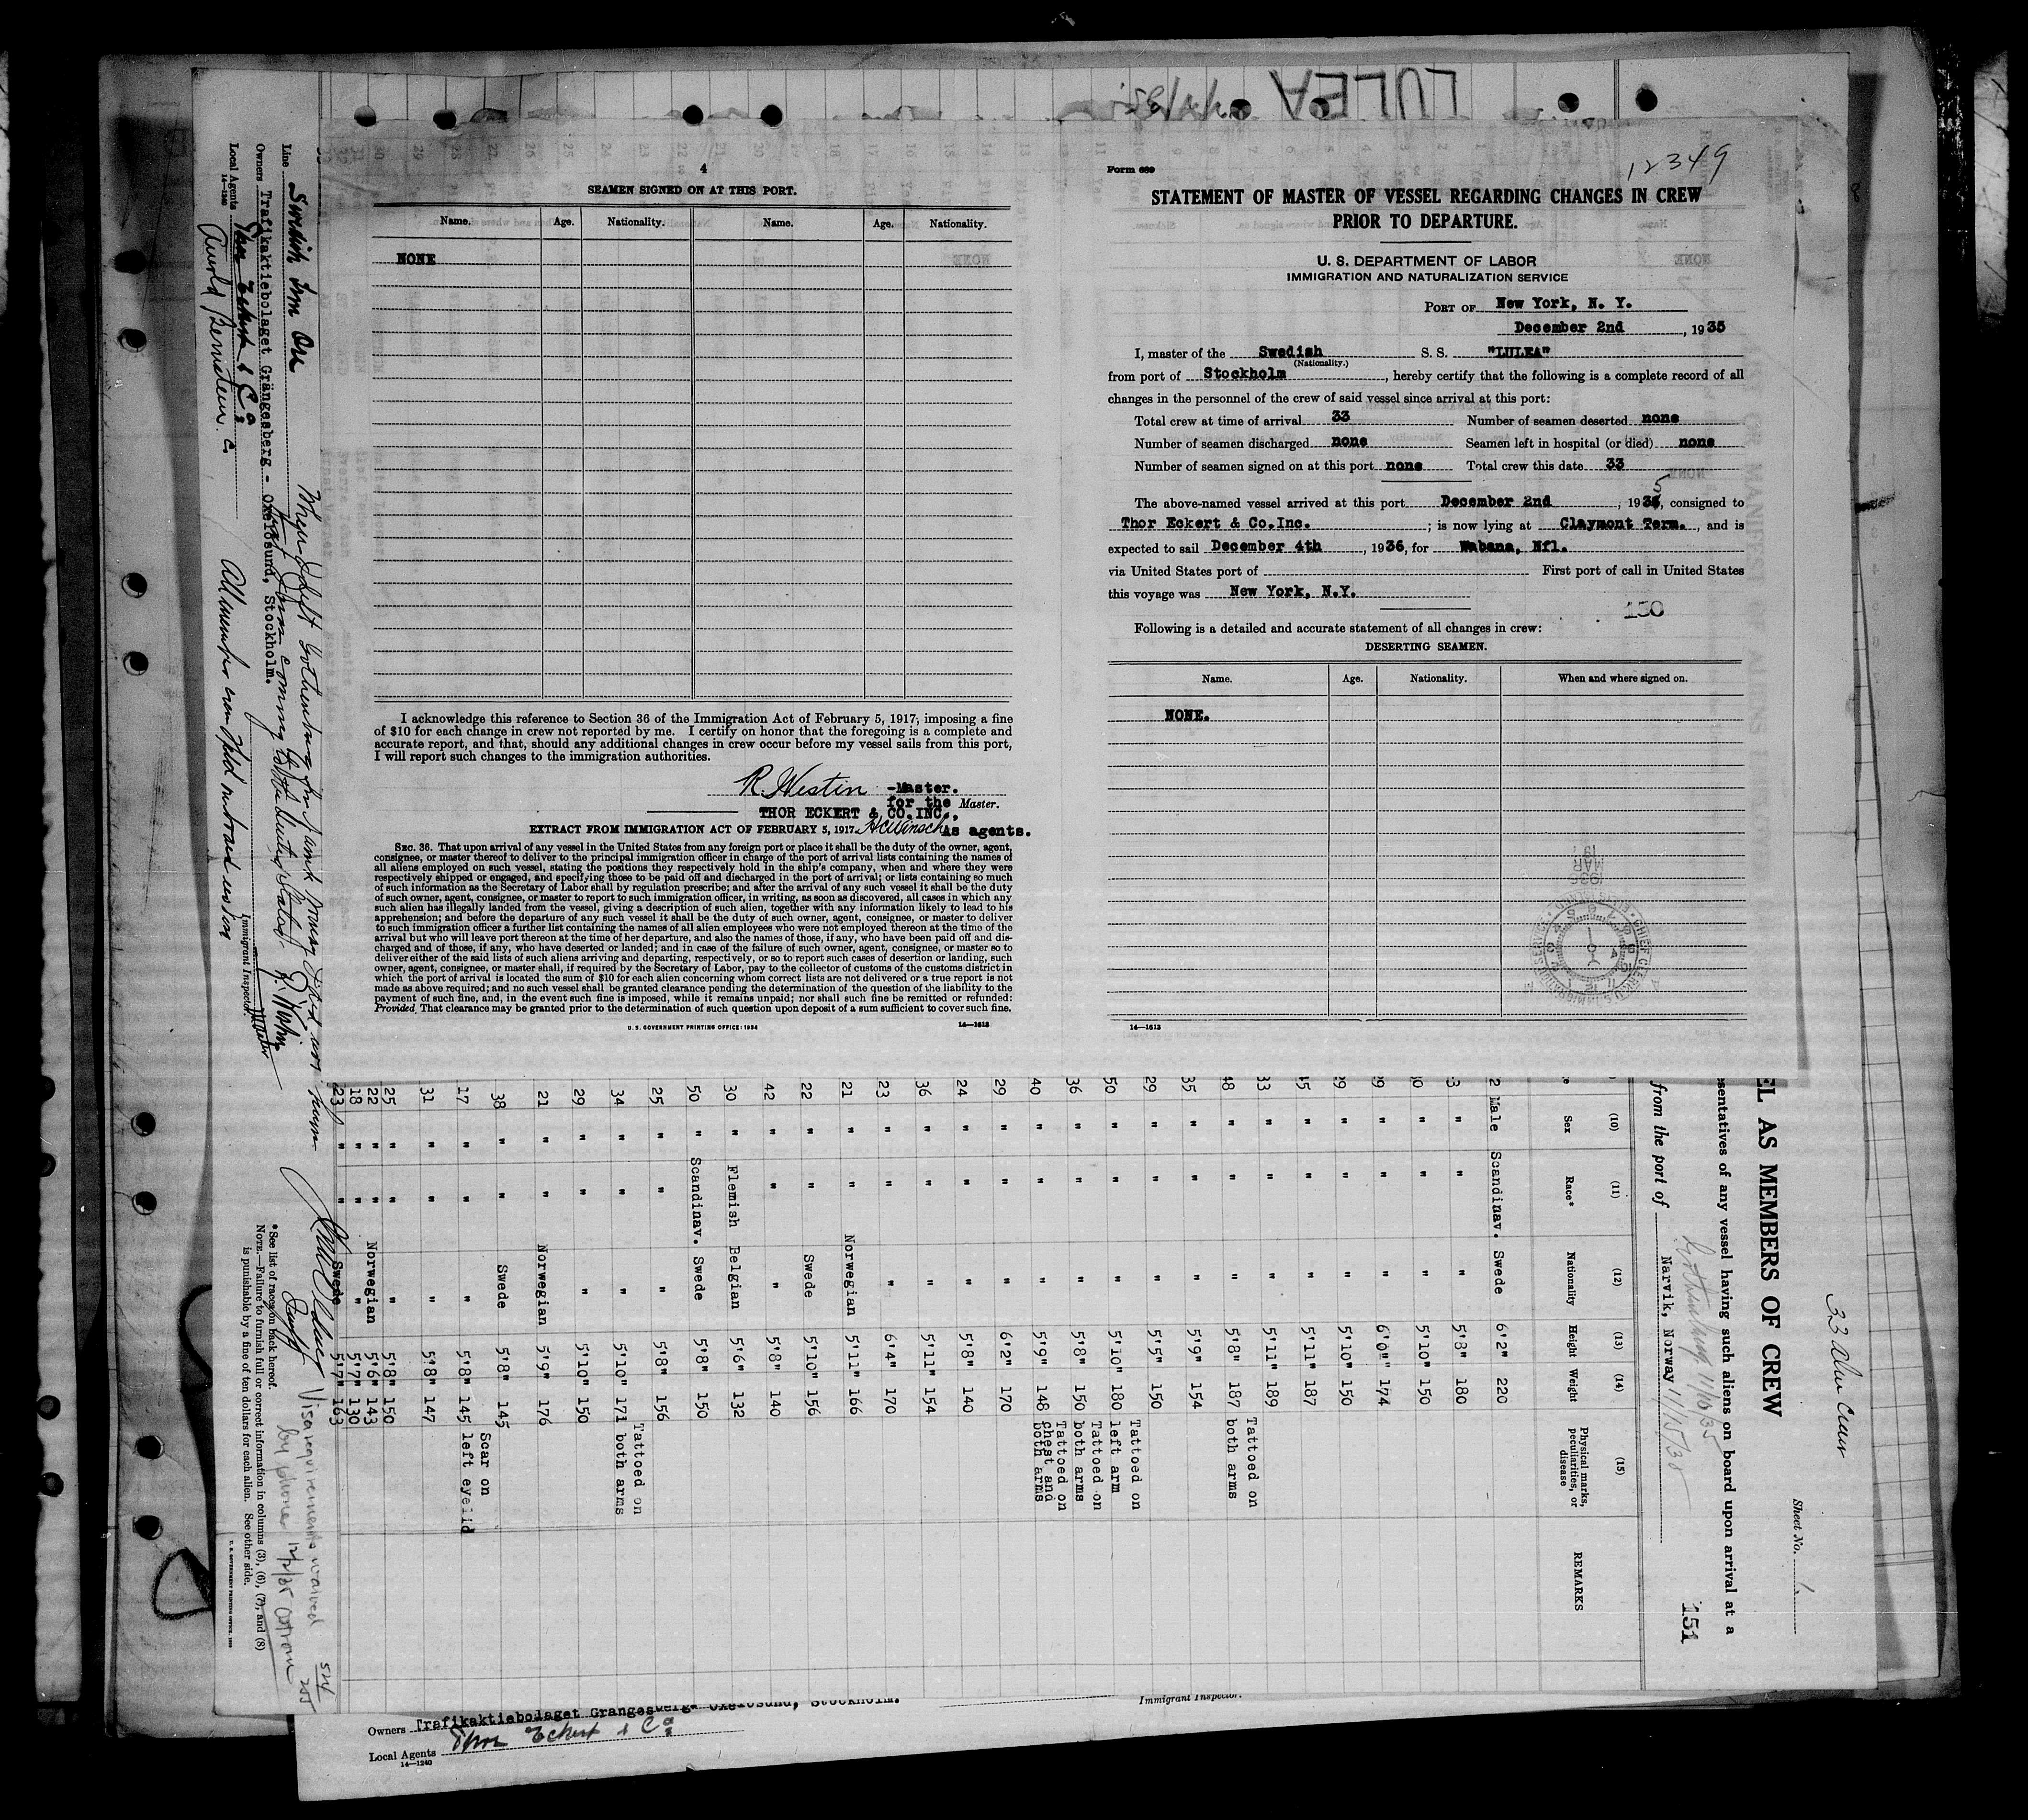 LULEA
4
SEAMEN SIGNED ON AT THIS PORT.
Name. Age. Nationality. Name. Age. Nationality.
NONE
I acknowledge this reference to Section 36 of the Immigration Act of February 5, 1917, imposing a fine
of $10 for each change in crew not reported by me. I certify on honor that the foregoing is a complete and
accurate report, and that, should any additional changes in crew occur before my vessel sails from this port,
I will report such changes to the immigration authorities.
R. Westin -Master.
for the Master.
THOR ECKERT & CO. INC.,
EXTRACT FROM IMMIGRATION ACT OF FEBRUARY 5, 1917. As agents.
SEC. 36. That upon arrival of any vessel in the United States from any foreign port or place it shall be the duty of the owner, agent,
consignee, or master thereof to deliver to the principal immigration officer in charge of the port of arrival lists containing the names of
all aliens employed on such vessel, stating the positions they respectively hold in the ship's company, when and where they were
respectively shipped or engaged, and specifying those to be paid off and discharged in the port of arrival; or lists containing so much
of such information as the Secretary of Labor shall by regulation prescribe; and after the arrival of any such vessel it shall be the duty
of such owner, agent, consignee, or master to report to such immigration officer, in writing, as soon as discovered, all cases in which any
such alien has illegally landed from the vessel, giving a description of such alien, together with any information likely to lead to his
apprehension; and before the departure of any such vessel it shall be the duty of such owner, agent, consignee, or master to deliver
to such immigration officer a further list containing the names of all alien employees who were not employed thereon at the time of the
arrival but who will leave port thereon at the time of her departure, and also the names of those, if any, who have been paid off and dis-
charged and of those, if any, who have deserted or landed; and in case of the failure of such owner, agent, consignee, or master so to
deliver either of the said lists of such aliens arriving and departing, respectively, or so to report such cases of desertion or landing, such
owner, agent, consignee, or master shall, if required by the Secretary of Labor, pay to the collector of customs of the customs district in
which the port of arrival is located the sum of $10 for each alien concerning whom correct lists are not delivered or a true report is not
made as above required; and no such vessel shall be granted clearance pending the determination of the question of the liability to the
payment of such fine, and, in the event such fine is imposed, while it remains unpaid; nor shall such fine be remitted or refunded:
Provided, That clearance may be granted prior to the determination of such question upon deposit of a sum sufficient to cover such fine.
U. S. GOVERNMENT PRINTING OFFICE: 1934 14—1613
Form 689
12349
STATEMENT OF MASTER OF VESSEL REGARDING CHANGES IN CREW
PRIOR TO DEPARTURE.
U. S. DEPARTMENT OF LABOR
IMMIGRATION AND NATURALIZATION SERVICE
PORT OF New York, N. Y.
December 2nd, 1935
I, master of the Swedish S. S. "LULEA"
(Nationality.)
from port of Stockholm, hereby certify that the following is a complete record of all
changes in the personnel of the crew of said vessel since arrival at this port:
Total crew at time of arrival 33 Number of seamen deserted none
Number of seamen discharged none Seamen left in hospital (or died) none
Number of seamen signed on at this port none Total crew this date 33
The above-named vessel arrived at this port December 2nd, 1935, consigned to
Thor Eckert & Co.Inc.; is now lying at Claymont Term., and is
expected to sail December 4th, 1936, for Wabana, Nfl.
via United States port of First port of call in United States
this voyage was New York, N.Y.
150
Following is a detailed and accurate statement of all changes in crew:
DESERTING SEAMEN.
Name. Age. Nationality. When and where signed on.
NONE.
14—1613
33 alien crew
Sheet No. 1
EL AS MEMBERS OF CREW
esentatives of any vessel having such aliens on board upon arrival at a
151
Gothenburg 11/10/35
from the port of Narvik, Norway 11/15/35
(10) (11) (12) (13) (14) (15)
Sex Race* Nationality Height Weight Physical marks, peculiarities, or disease REMARKS
2 Male Scandinav. Swede 6'2" 220
3 " " " 5'8" 180
0 " " " 5'10" 150
9 " " " 6'0" 174
9 " " " 5'10" 150
5 " " " 5'11" 187
33 " " " 5'11" 189
48 " " " 5'8" 187 Tattoed on both arms
35 " " " 5'9" 154
29 " " " 5'5" 150
50 " " " 5'10" 180 Tattoed on left arm
36 " " " 5'8" 150 Tattoed on both arms
40 " " " 5'9" 148 Tattoed on chest and both arms
29 " " " 6'2" 170
24 " " " 5'8" 140
36 " " " 5'11" 154
23 " " " 6'4" 170
21 " " Norwegian 5'11" 166
22 " " Swede 5'10" 156
42 " " " 5'8" 140
30 " Flemish Belgian 5'6" 132
50 " Scandinav. Swede 5'8" 150
25 " " " 5'8" 156
34 " " " 5'10" 171 Tattoed on both arms
29 " " " 5'10" 150
21 " " Norwegian 5'9" 176
38 " " Swede 5'8" 145
17 " " " 5'8" 145 Scar on left eyelid
31 " " " 5'8" 147
25 " " " 5'8" 150
22 " " Norwegian 5'6" 143
18 " " " 5'7" 130
23 " " Swede 5'7" 163
Line Swedish Iron Ore
Owners Trafikaktiebolaget Grängesberg - Oxelösund, Stockholm.
Local Agents Thor Eckert & Co
Arnold Bernstein
14—1240
Immigrant Inspector.
Master
R. Westin
*See list of races on back hereof.
NOTE.—Failure to furnish full or correct information in columns (3), (6), (7), and (8)
is punishable by a fine of ten dollars for each alien. See other side.
Visa requirements waived
by phone 12/2/35
Owners Trafikaktiebolaget Grangesberga Oxelosund, Stockholm.
Immigrant Inspector.
Local Agents Thor Eckert & Co
14—1240